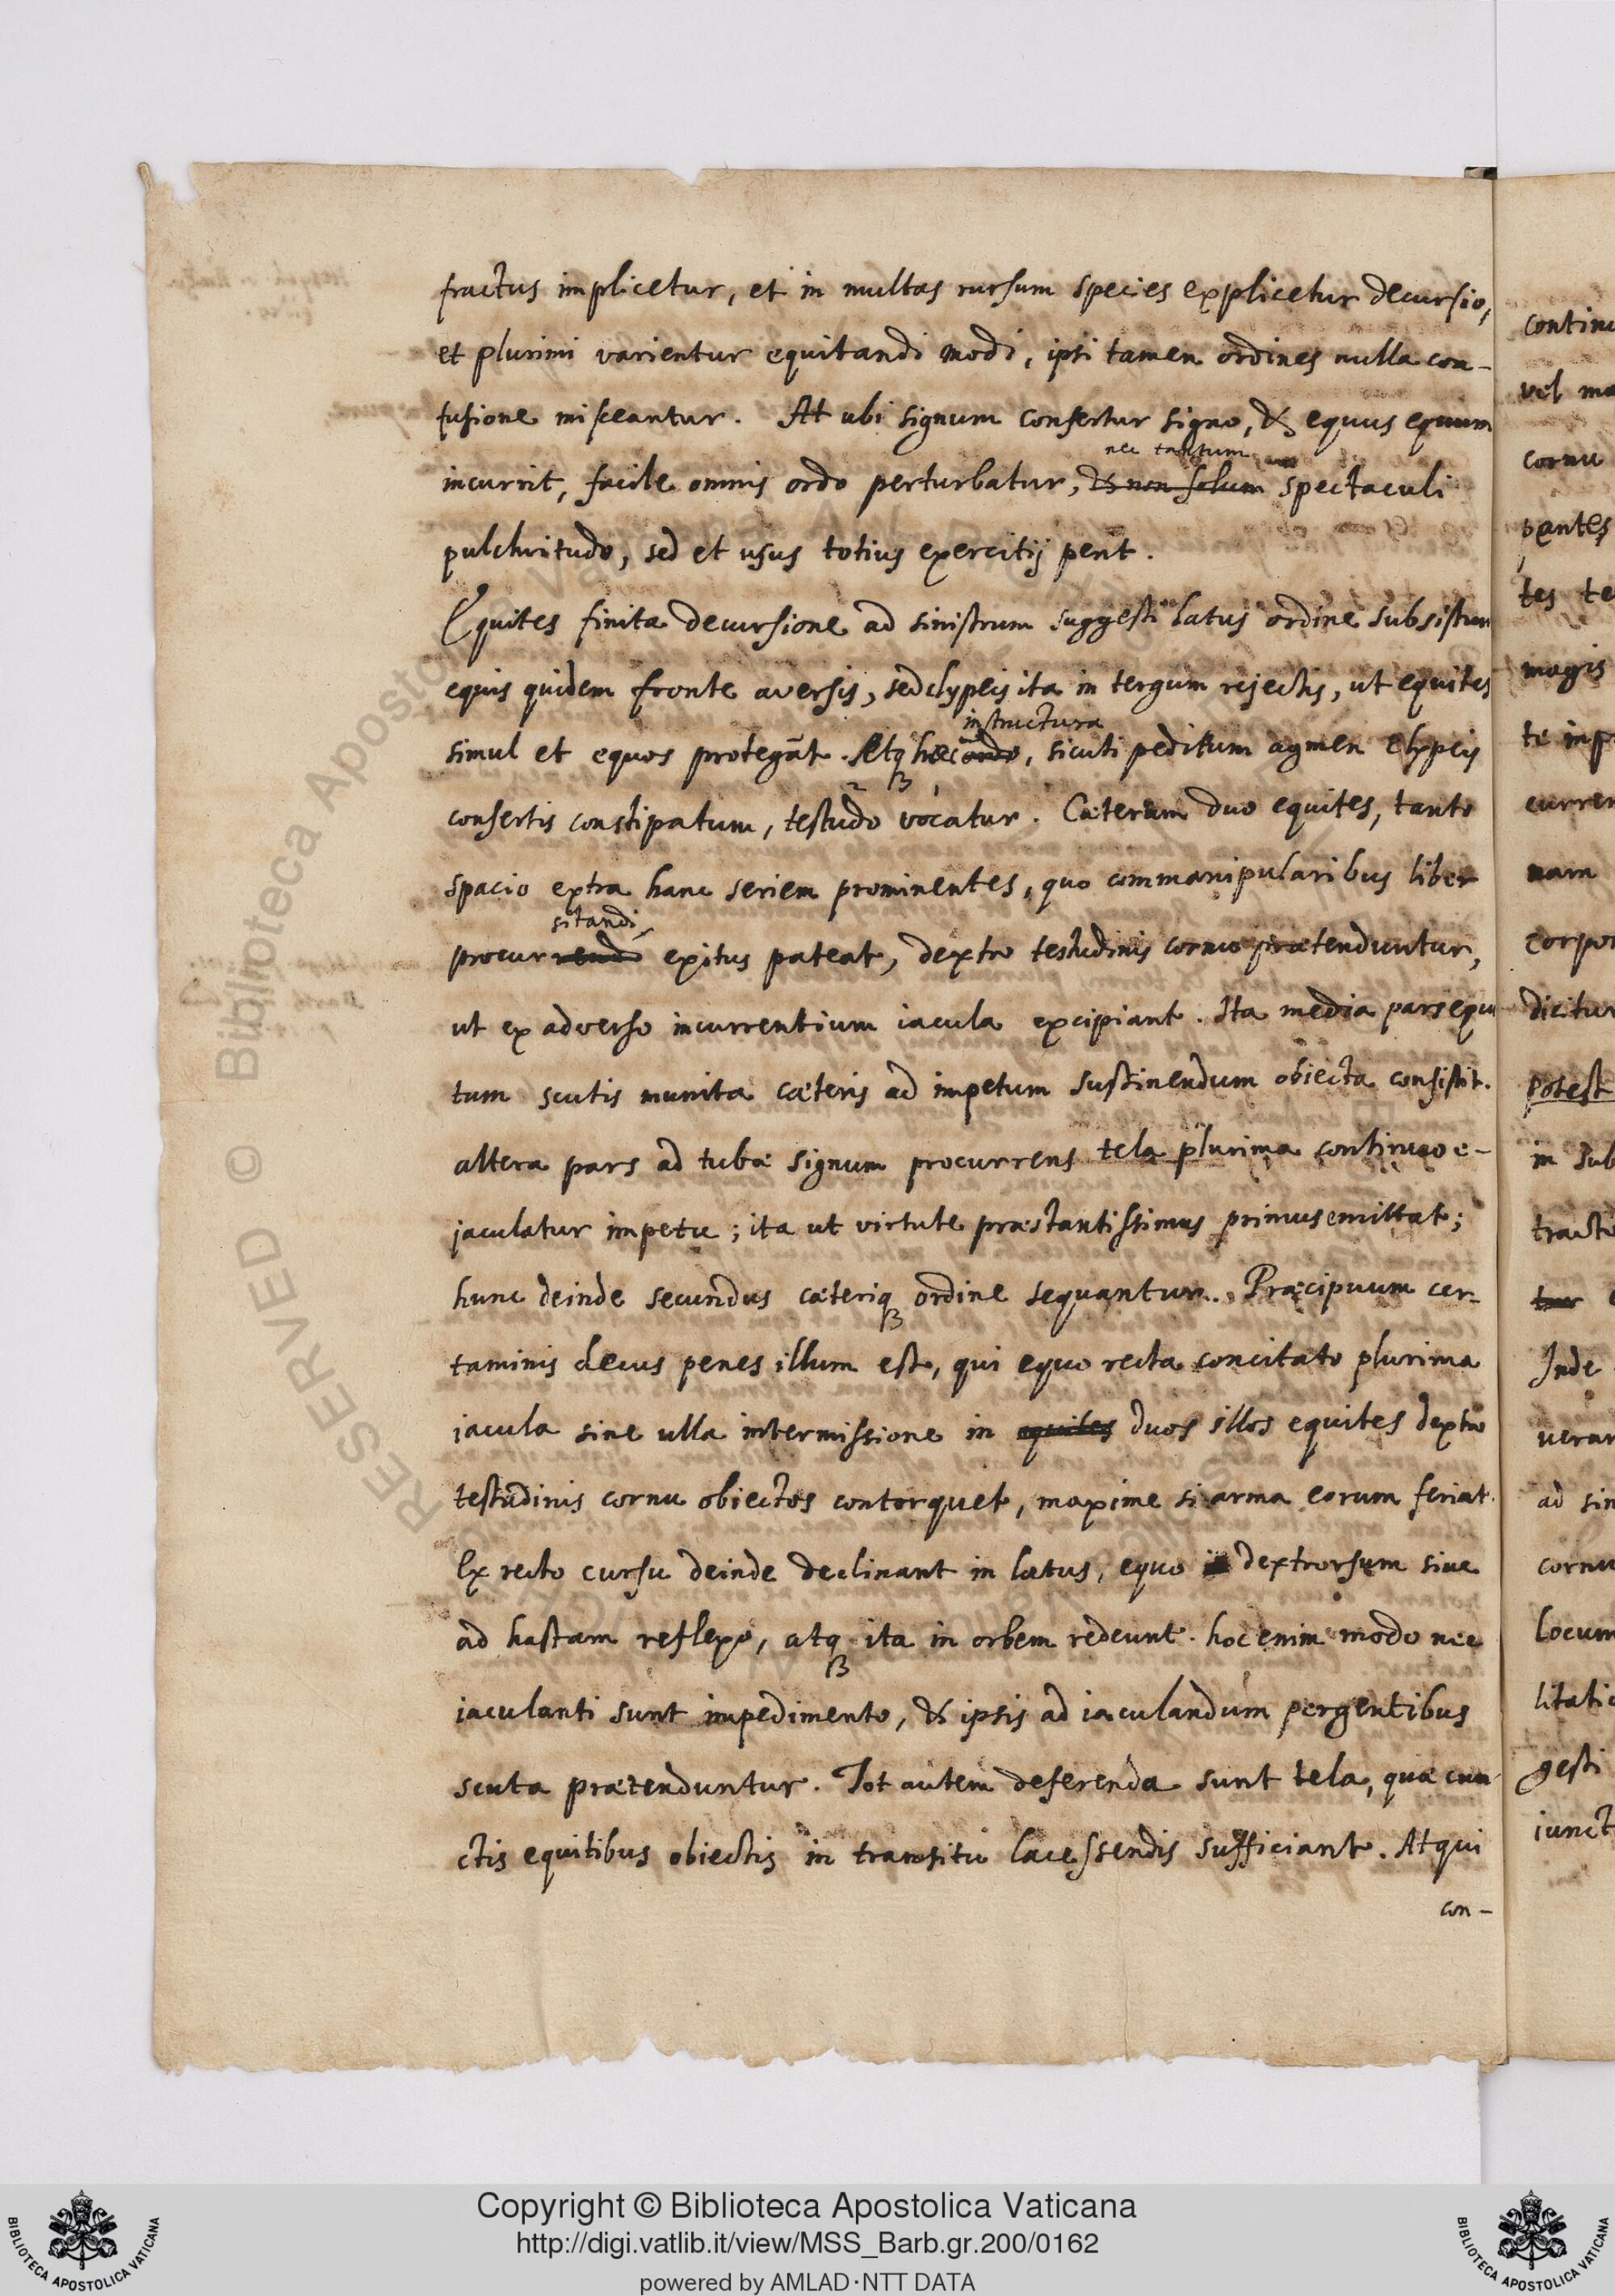 fractus implicetur, et in multas rursum species explicetur decursio,
et plurimi varientur equitandi modi, ipsi tamen ordines nulla con-
fusione misceantur. At ubi signum consertur signo, & equus equum
nec tantum
incurrit, facile omnis ordo perturbatur, & non solum spectaculi
pulchritudo, sed et usus totius exercitij perit.
Equites finita decursione ad sinistrum suggesti latus ordine subsistun
equis quidem fronte aversis, sed clypeis ita in tergum rejectis, ut equites
instructura
simul et equos protegāt. Atq hæc ordo, sicuti peditum agmen clypeis
consertis constipatum, testudo vocatur. Cæterum duo equites, tanto
spacio extra hanc seriem prominentes, quo commanipularibus liber
sitandi
procurrendi exitus pateat, dextro testudinis cornu prætenduntur,
ut ex adverso incurrentium iacula excipiant. Ita media pars equi
tum scutis munita cæteris ad impetum sustinendum obiecta consistit.
altera pars ad tubæ signum procurrens tela plurima continuo e-
jaculatur impetu; ita ut virtute præstantissimus primus emittat;
hunc deinde secundus cæteriq ordine sequantur. Præcipuum cer-
taminis decus penes illum est, qui equo recta concitato plurima
iacula sine ulla intermissione in equites duos illos equites dextro
testudinis cornu obiectos contorquet, maxime si arma eorum feriat.
Ex recto cursu deinde declinant in latus, equo dextrorsum sive
ad hastam reflexo, atq ita in orbem redeunt. hoc enim modo nec
iaculanti sunt impedimento, & ipsis ad iaculandum pergentibus
scuta prætenduntur. Tot autem deferenda sunt tela, quæ cun
ctis equitibus obiectis in transitu lacessendis sufficiant. Atqui
con-
continu
vel ma
cornu
pantes
tes te
magis
te imp
curren
nam
corpor
dicitur
potest
in sub
tracti
tur
Inde
verar
ad sin
cornu
locum
litatio
gesti
iunct
RESERVED © Biblioteca Apostolica Vaticana
Copyright © Biblioteca Apostolica Vaticana
http://digi.vatlib.it/view/MSS_Barb.gr.200/0162
powered by AMLAD·NTT DATA
BIBLIOTECA APOSTOLICA VATICANA
BIBLIOTECA APOSTOLICA VATICANA